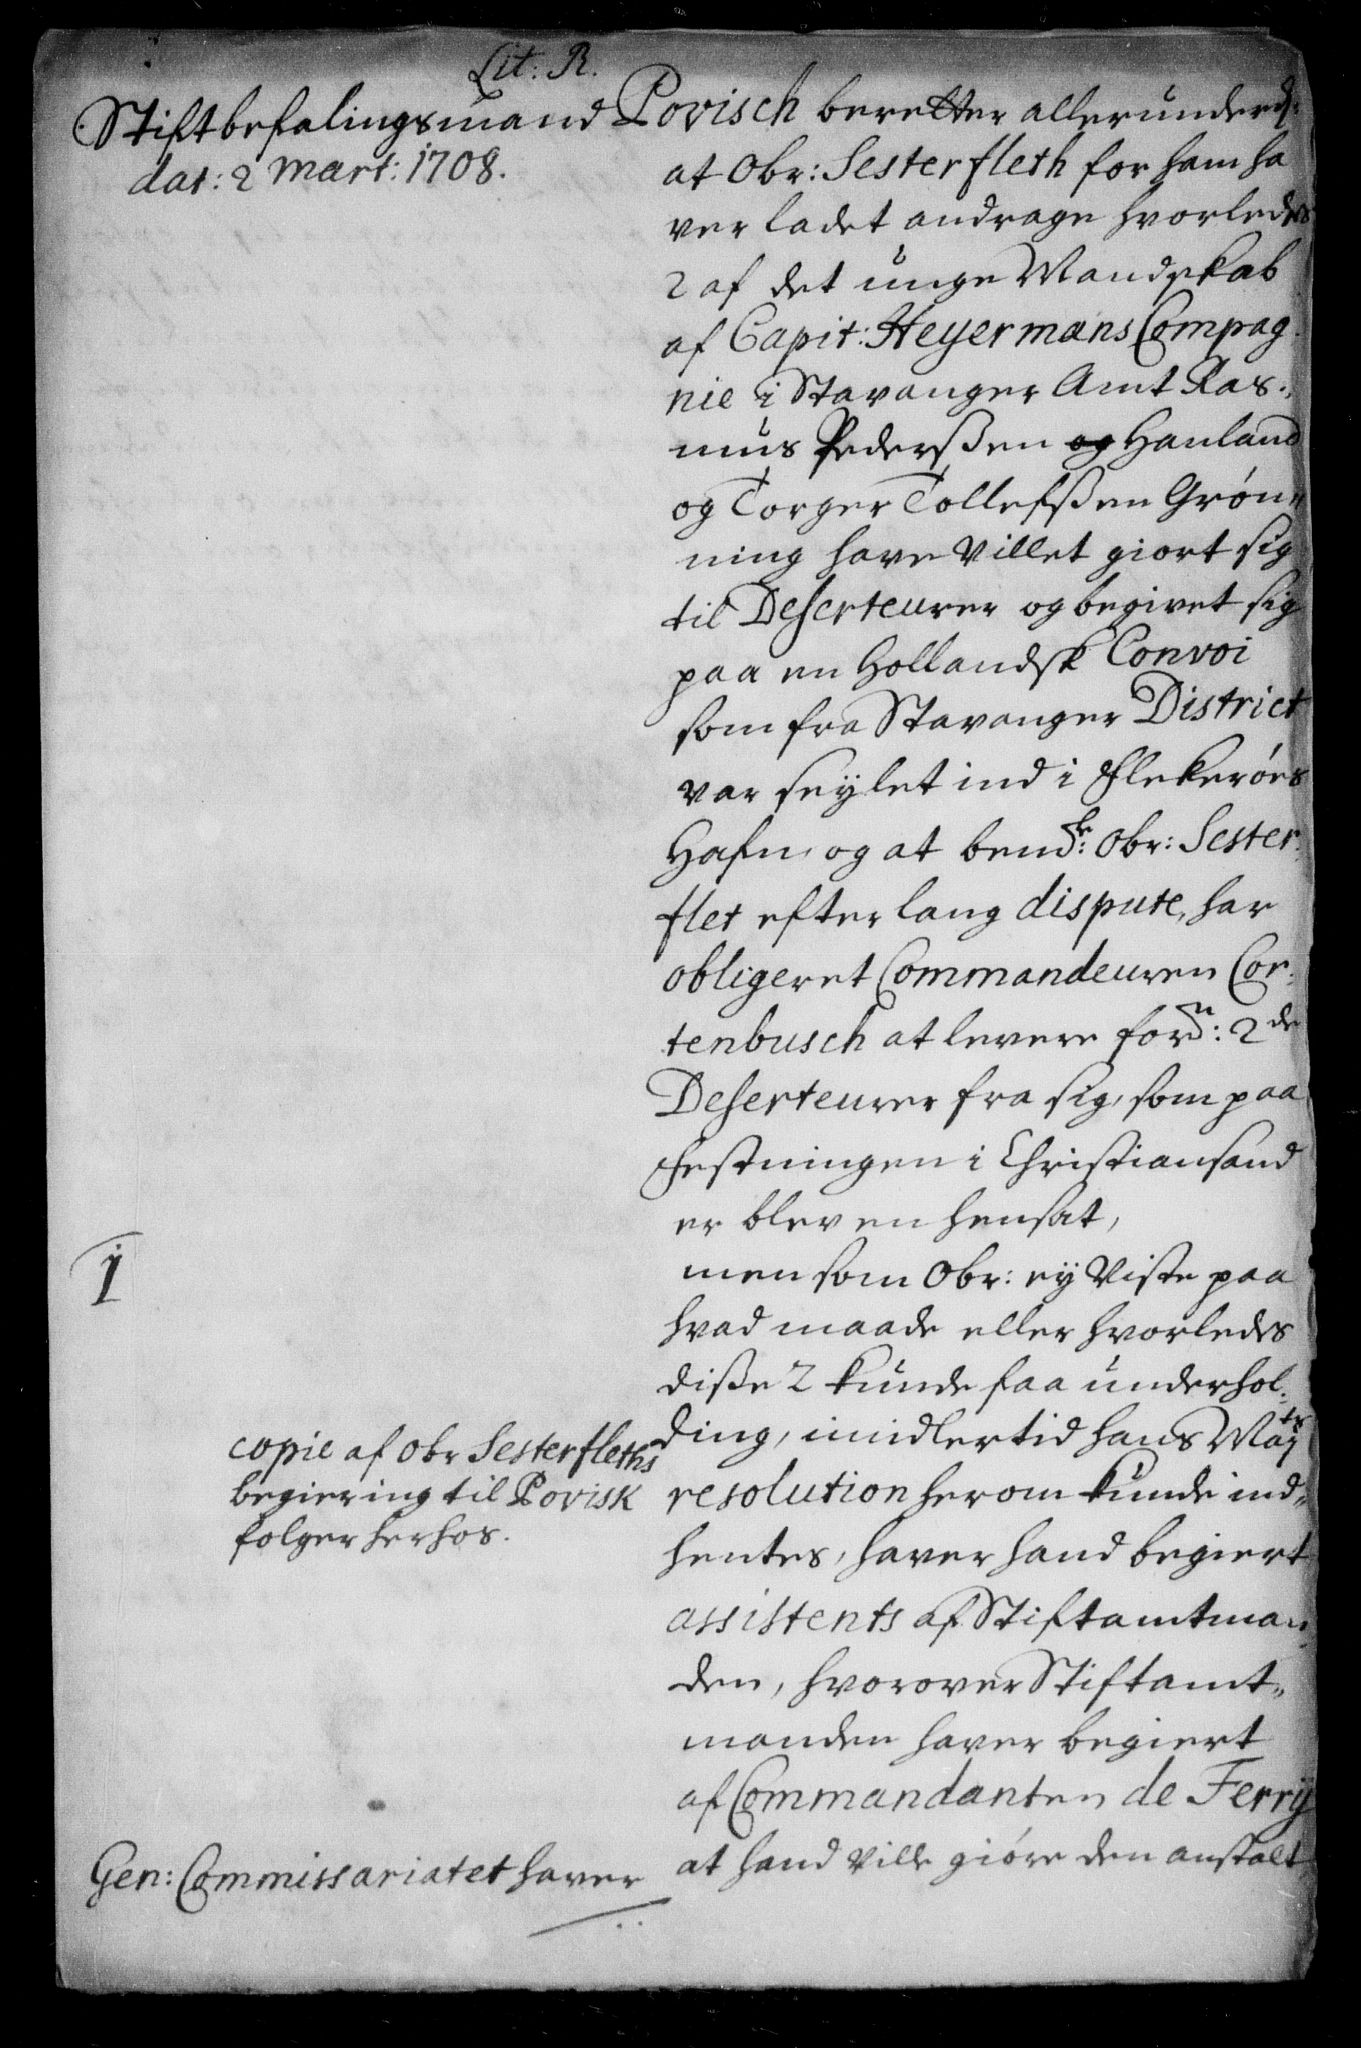 Lit: R.
Stiftbefalingsmand Povisch beretter allerunderd:
dat: 2 Mart: 1708.
at Obr: Sesterfleth for ham ha
ver ladet andrage hvorledes
2 af det unge Mandskab
af Capit: Heyermans Compag
nie i Stavanger Amt Ras-
mus Pederßen og Hauland
og Torger Tollefsßen Grøn-
ning have villet giort sig
til Deserteurer og begivet sig
paa en Hollandsk Convoi
som fra Stavanger District
var seylet ind i Flekerøes
Hafn, og at bemd.te: Obr: Sester
flet efter lang dispute, har
obligeret Commandeuren Cor-
tenbusch at levere ford.n: 2de
Deserteurer fra sig, som paa
Festningen i Christiansand
er bleven hensat,
men som Obr: ey viste paa
hvad maade eller hvorledes
diße 2 kunde faa underhol-
1
ding, imidlertid hans Mayts
copie af Obr Sesterfleths
resolution herom kunde ind-
begiering til Povisk
folger herhos.
hentes, haver hand begiert
assistents af Stiftamtman
den, hvorover Stiftamt-
manden haver begiert
af Commandanten de Ferry
at hand ville giøre den anstalt
Gen: Commissariatet haver